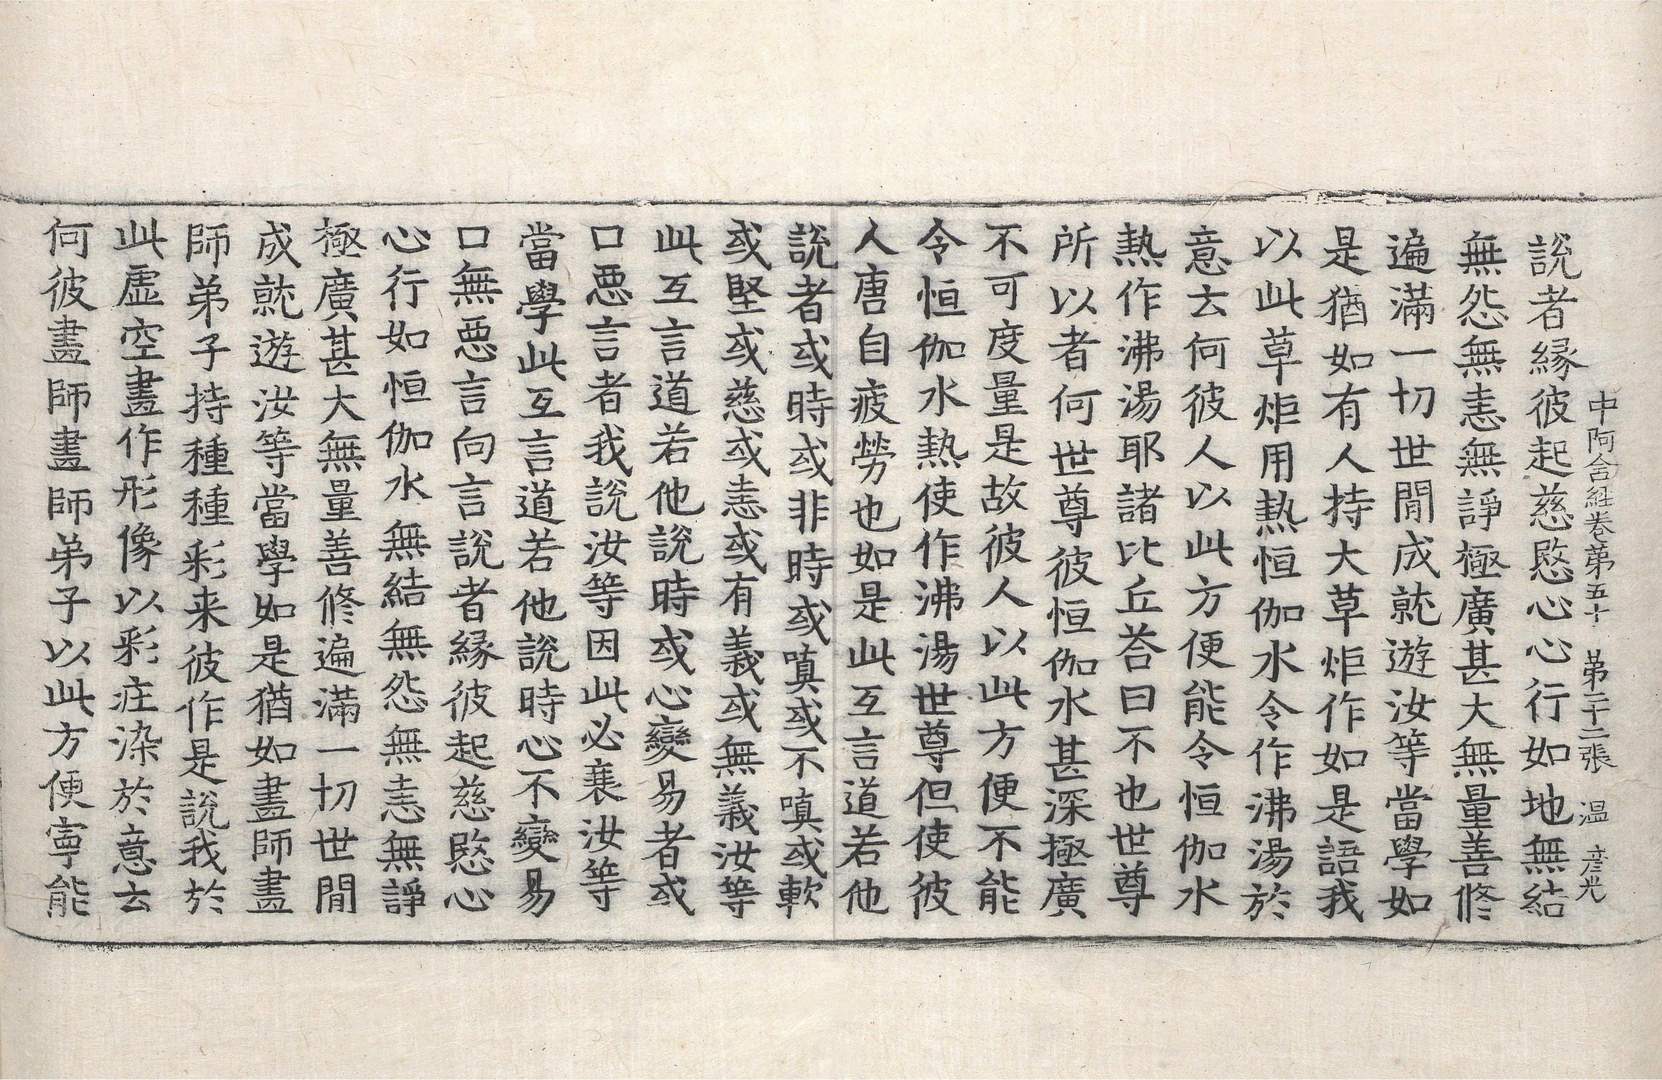 中阿含経卷第五十 第二十二張 温 彦光
説者縁彼起慈愍心心行如地無結
無怨無恚無諍極廣甚大無量善修
遍滿一切世間成就遊汝等當學如
是猶如有人持大草炬作如是語我
以此草炬用熱恒伽水令作沸湯於
意云何彼人以此方便能令恒伽水
熱作沸湯耶諸比丘荅曰不也世尊
所以者何世尊彼恒伽水甚深極廣
不可度量是故彼人以此方便不能
令恒伽水熱使作沸湯世尊但使彼
人唐自疲勞也如是此互言道若他
説者或時或非時或嗔或不嗔或軟
或堅或慈或恚或有義或無義汝等
此互言道若他説時或心變易者或
口惡言者我説汝等因此必衰汝等
當學此互言道若他説時心不變易
口無惡言向言説者縁彼起慈愍心
心行如恒伽水無結無怨無恚無諍
極廣甚大無量善修遍滿一切世間
成就遊汝等當學如是猶如畫師畫
師弟子持種種彩来彼作是説我於
此虛空畫作形像以彩庄染於意云
何彼畫師畫師弟子以此方便寧能